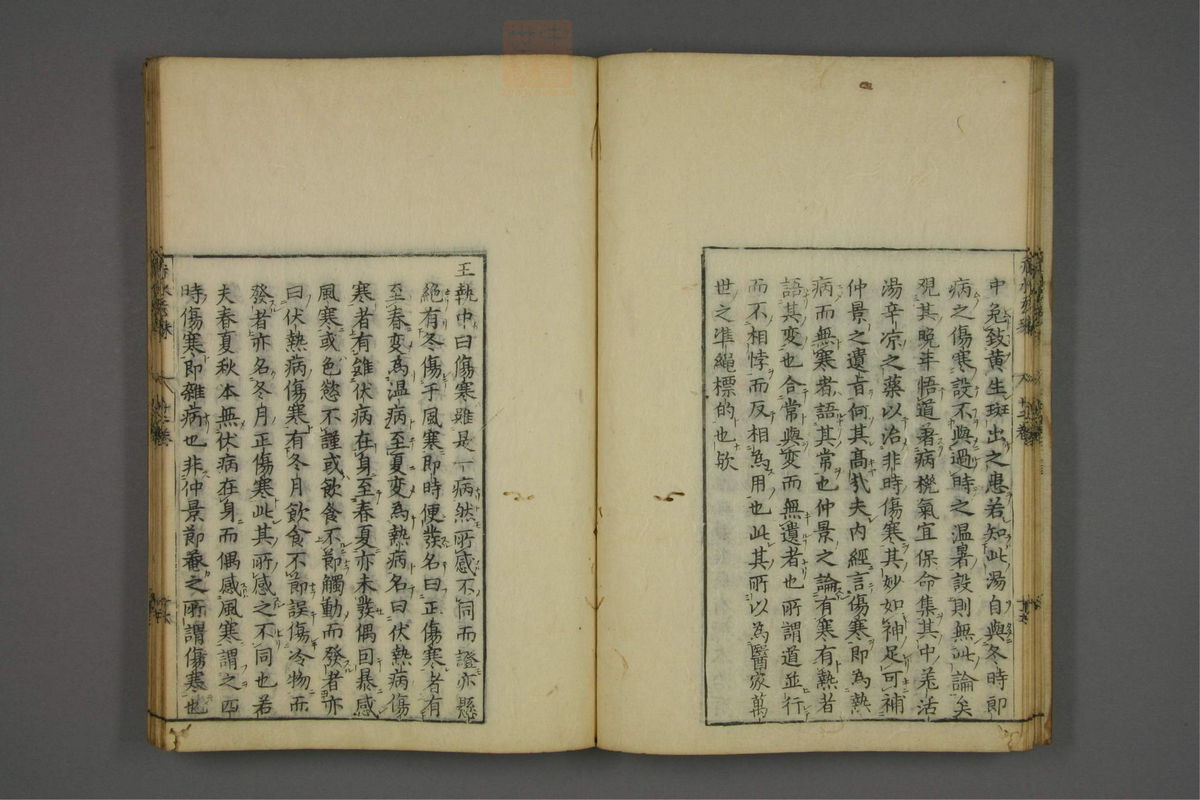 中免致黄生斑出之患若知此湯自與冬時即
病之傷寒設不與過時之温暑設則無此論矣
䂓其晚年悟道著病機氣宜保命集其中羌活
湯辛凉之藥以治非時傷寒其妙如神足可補
仲景之遺旨何其髙哉夫内經言傷寒即為熱
病而無寒者語其常也仲景之論有寒有熱者
語其変也合常與変而無遺者也所謂道並行
而不相悖而反相為用也此其所以為醫家萬
世之凖繩標的也欤
王執中曰傷寒雖是一病然所感不同而證亦懸
絶有冬傷于風寒即時便發名曰正傷寒者有
至春変為温病至夏変為熱病名曰伏熱病傷
寒者有雖伏病在身至春夏亦未發偶因暴感
風寒或色慾不謹或飲食不節觸動而發者亦
曰伏熱病傷寒有冬月飲食不節誤傷冷物而
發者亦名冬月正傷寒此其所感之不同也若
夫春夏秋本無伏病在身而偶感風寒謂之四
時傷寒即雜病也非仲景節菴之所謂傷寒也